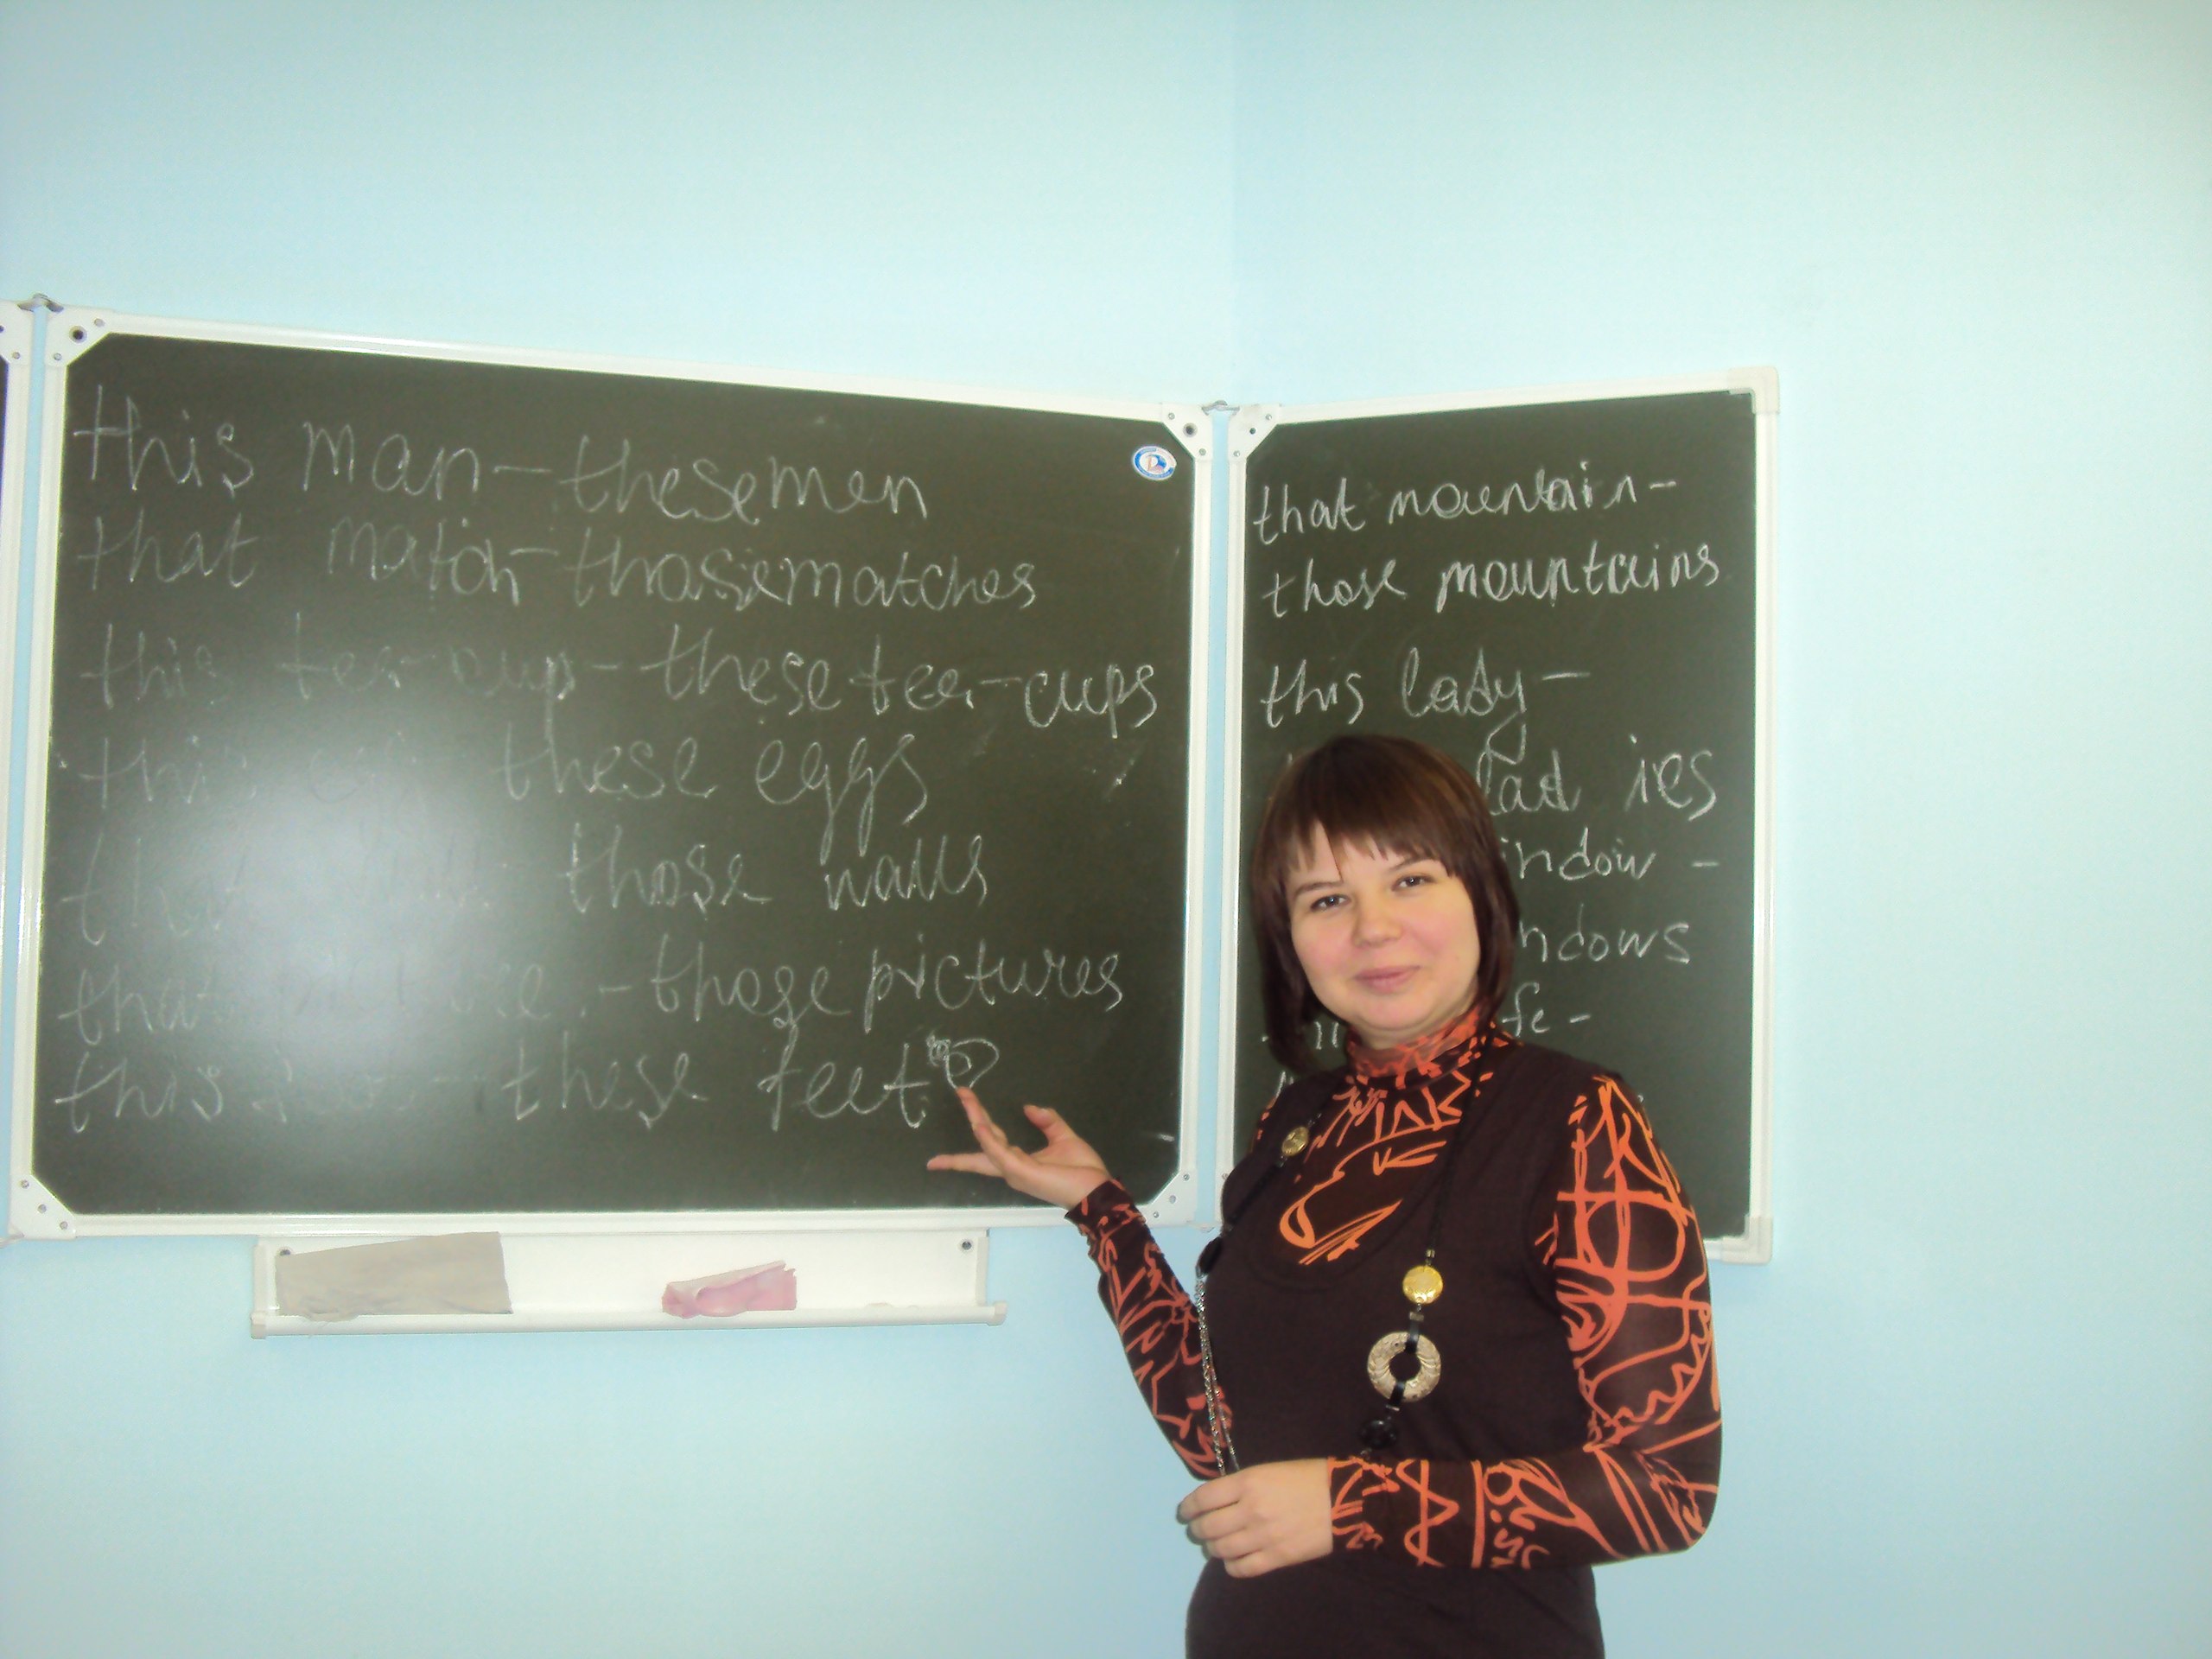 this man - these men
that match - those matches
this tea-cup - these tea-cups
this egg these eggs
that those walls
that picture - those pictures
this - these feet
that mountain -
those mountains
this lady -
ladies
indow -
ndows
fe -